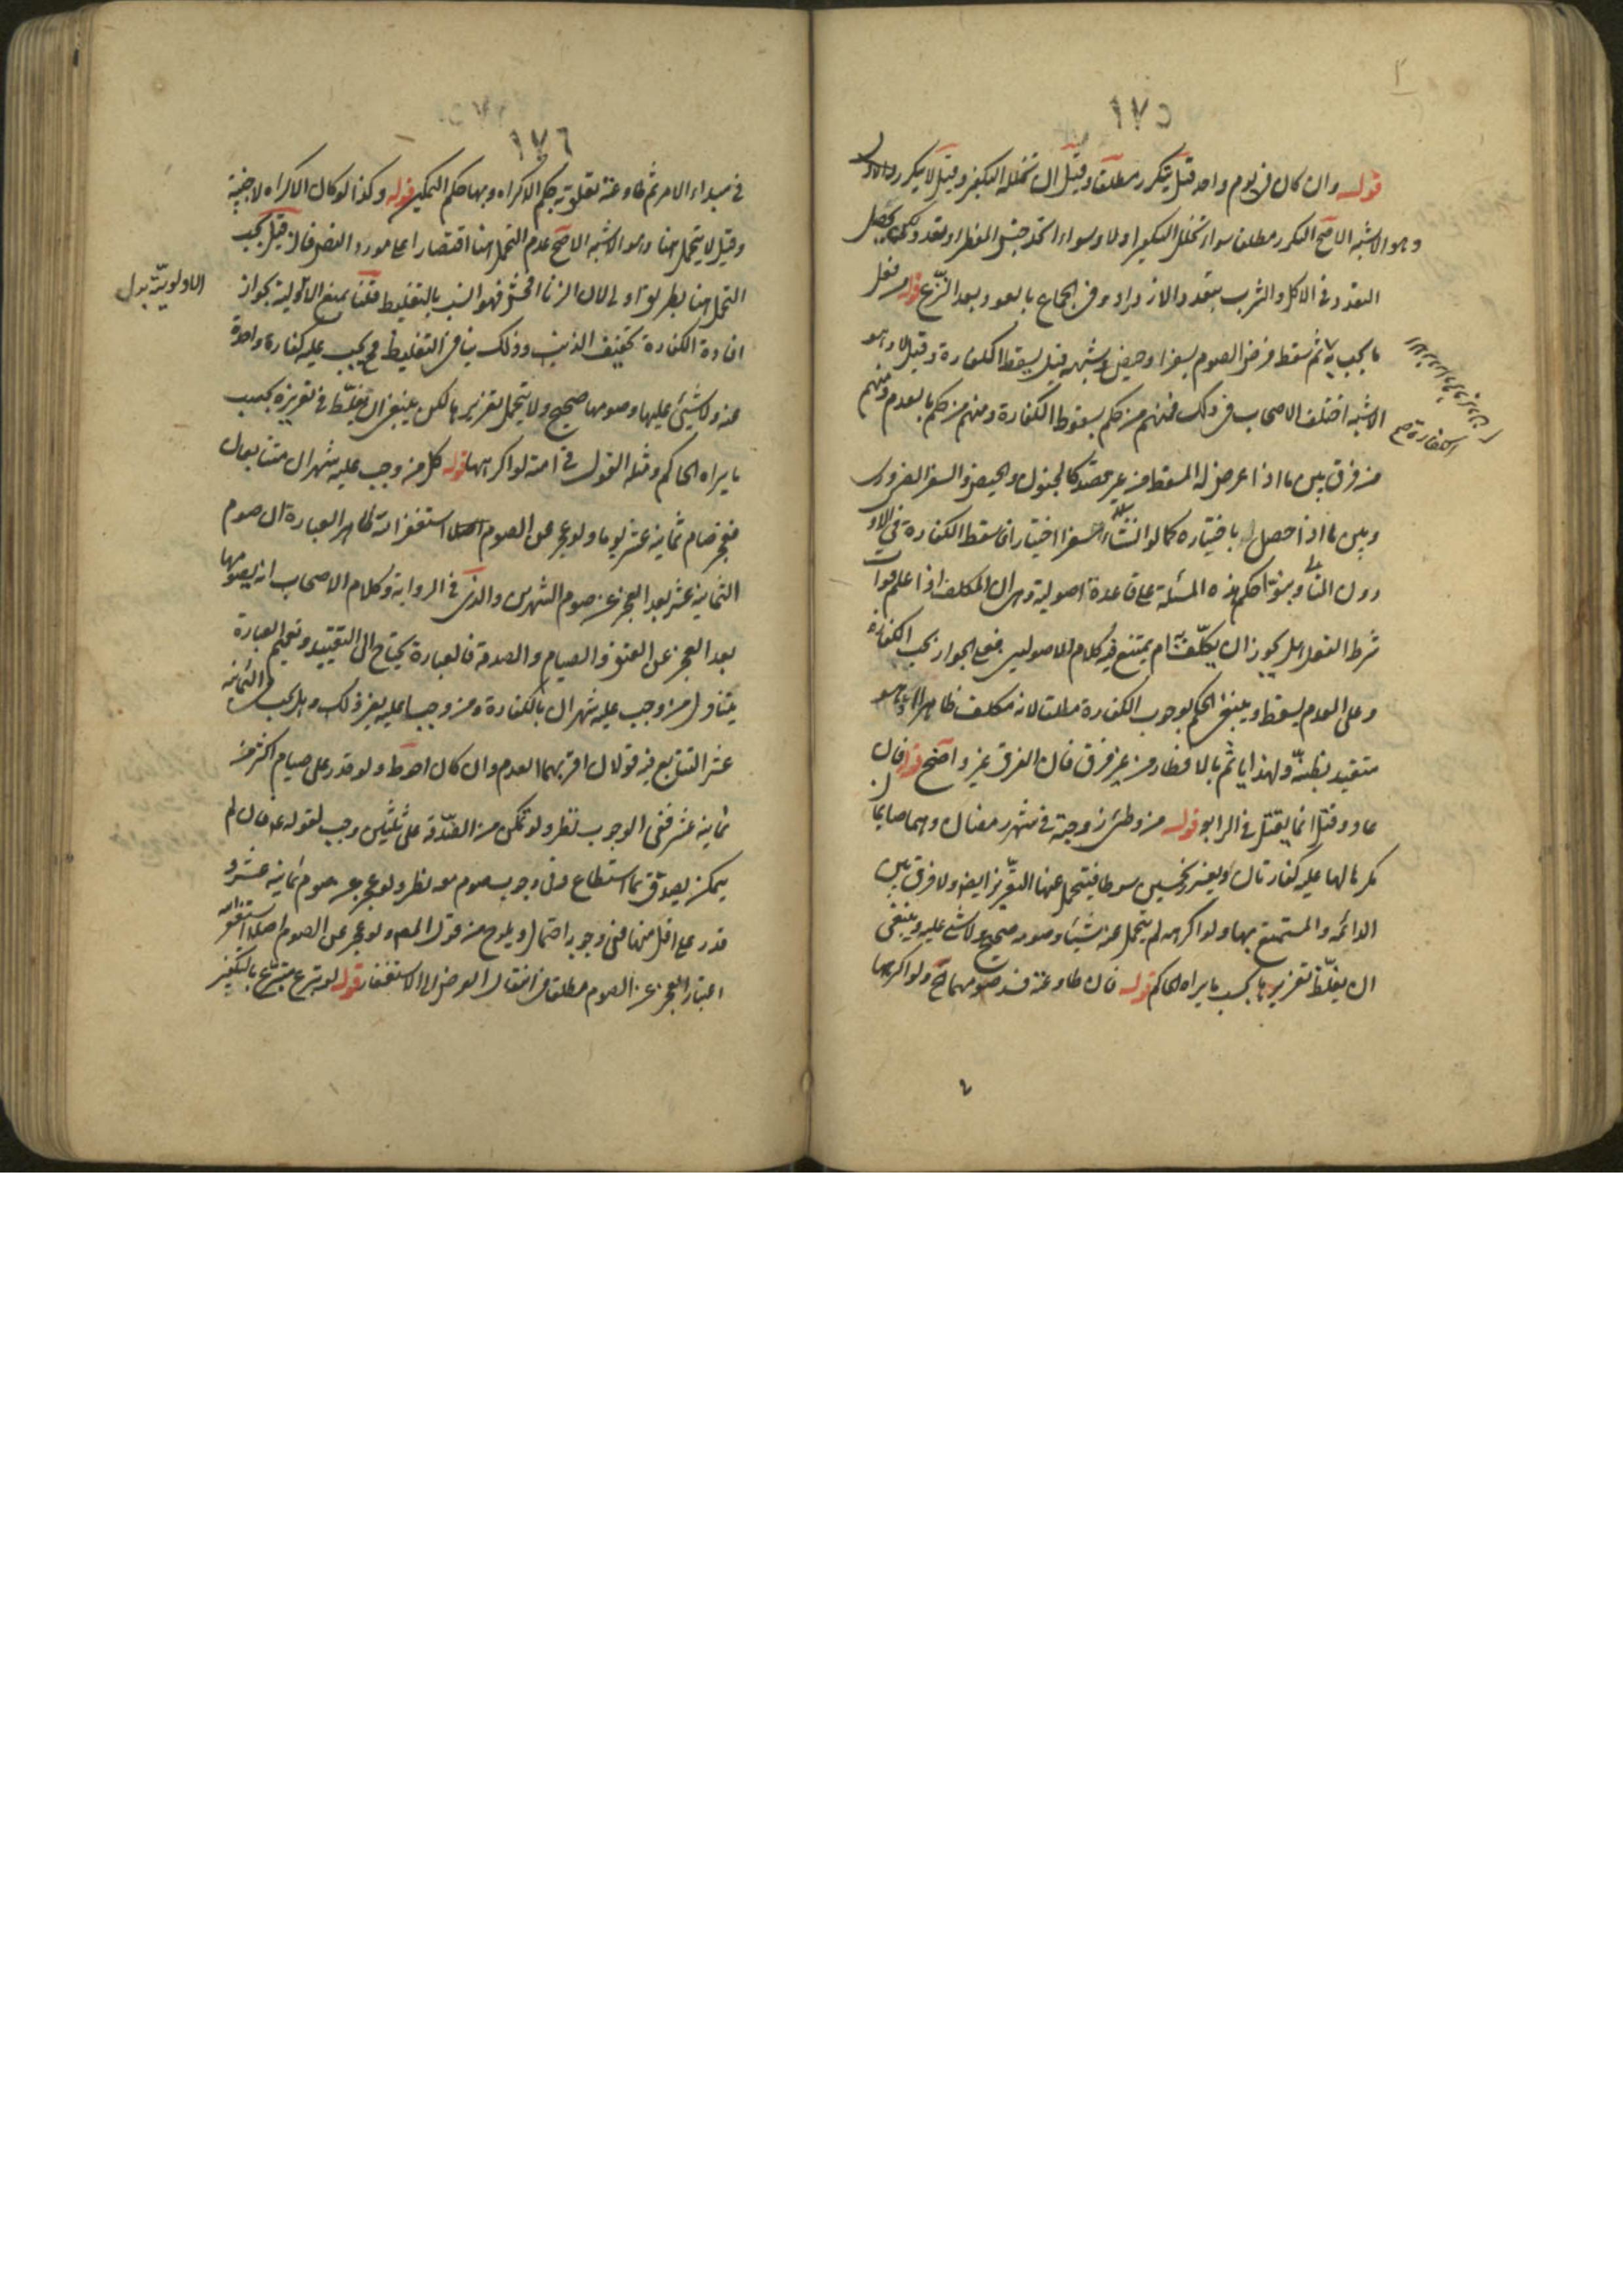 ١٧٥
قوله وان كان في يوم واحد قيل يتكرر مطلقا وقيل ان تخلله التكفير وقيل لا يتكرر
وهو الاشبه الاصح التكرر مطلقا سواء تخلل التكفير اولا وسواء اتحد جنس المفطر او تعدد ويحصل
التعدد في الاكل والشرب بتعدد الازدراد وفي الجماع بالعود بعد النزع قوله من فعل
ما يجب به ثم سقط فرض الصوم بسفر او حيض وشبهه قيل يسقط الكفارة وقيل لا وهو
الاشبه اختلف الاصحاب في ذلك فمنهم من حكم بسقوط الكفارة ومنهم من حكم بالعدم ومنهم
الكفارة صح
من فرق بين ما اذا عرض له المسقط من غير قصد كالجنون والحيض والسفر الضروري
وبين ما اذا حصل باختياره كما لو انشاء سفرا اختيارا فاسقط الكفارة في الاول
دون الثاني وبنوا حكم هذه المسئلة على قاعدة اصولية وهي ان المكلف اذا علم فوات
شرط الفعل هل يجوز ان يكلف به ام يمتنع فيه كلام للاصوليين فعلى الجواز يجب الكفارة
وعلى العدم يسقط وينبغي الحكم بوجوب الكفارة مطلقا لانه مكلف ظاهرا
متعبد بظنه ولهذا ياثم بالافطار من غير فرق فان الفرق غير واضح قوله فان
عاد وقيل انما يقتل في الرابع قوله من وطئ زوجته في شهر رمضان وهما صايما
مكرها لها عليه كفارتان ويعزر بخمسين سوطا فيتحمل عنها التعزير ايضا ولا فرق بين
الدائمة والمستمتع بها ولو اكرهته لم يتحمل عنه شيئا وصومه صحيح ولا شئ عليه وينبغي
ان يغلظ تعزيرها بحسب ما يراه الحاكم قوله فان طاوعته فسد صومهما الخ ولو اكرهها
١٧٦
في مبداء الامر ثم طاوعته تعلق به حكم الاكراه وبها حكم التمكين قوله وكذا لو كان الاكراه لاجنبية
وقيل لا يتحمل هنا وهو الاشبه الاصح عدم التحمل هنا اقتصارا على مورد النص فان قيل يجب
التحمل هنا بطريق اولى لان الزنا افحش فهو انسب بالتغليظ قلنا نمنع الاولية بجواز
الاولوية بدل
افادة الكفارة تخفيف الذنب وذلك ينافي التغليظ فح يجب عليه كفارة واحدة
عنه ولا شئ عليها وصومها صحيح ولا يتحمل تعزيرها لكن ينبغي ان يغلظ في تعزيره بحسب
ما يراه الحاكم ومثله القول في امته لو اكرهها قوله كل من وجب عليه شهران متتابعان
فعجز صام ثمانية عشر يوما ولو عجز عن الصوم اصلا استغفر الله ظاهر العبارة ان صوم
الثمانية عشر بعد العجز عن صوم الشهرين والذي في الرواية وكلام الاصحاب انه يصومها
بعد العجز عن العتق والصيام والصدقة فالعبارة يحتاج الى التقييد وتعميم العبارة
يتناول من وجب عليه شهران بالكفارة ومن وجبا عليه بغير ذلك وهل يجب في الثمانية
عشر التتابع فيه قولان اقربهما العدم وان كان احوط ولو قدر على صيام اكثر من
ثمانية عشر ففي الوجوب نظر ولو تمكن من الصدقة على ثلثين وجب لقوله ع فان لم
يتمكن يصدق بما استطاع وفي وجوب صوم معه نظر ولو عجز عن صوم ثمانية عشر و
قدر على اقل منها ففي وجوبه احتمال ويلوح من قول المصـ ولو عجز عن الصوم اصلا استغفر الله
اعتبار العجز عن الصوم مطلقا في انتقال الفرض الى الاستغفار قوله لو تبرع متبرع بالتكفير